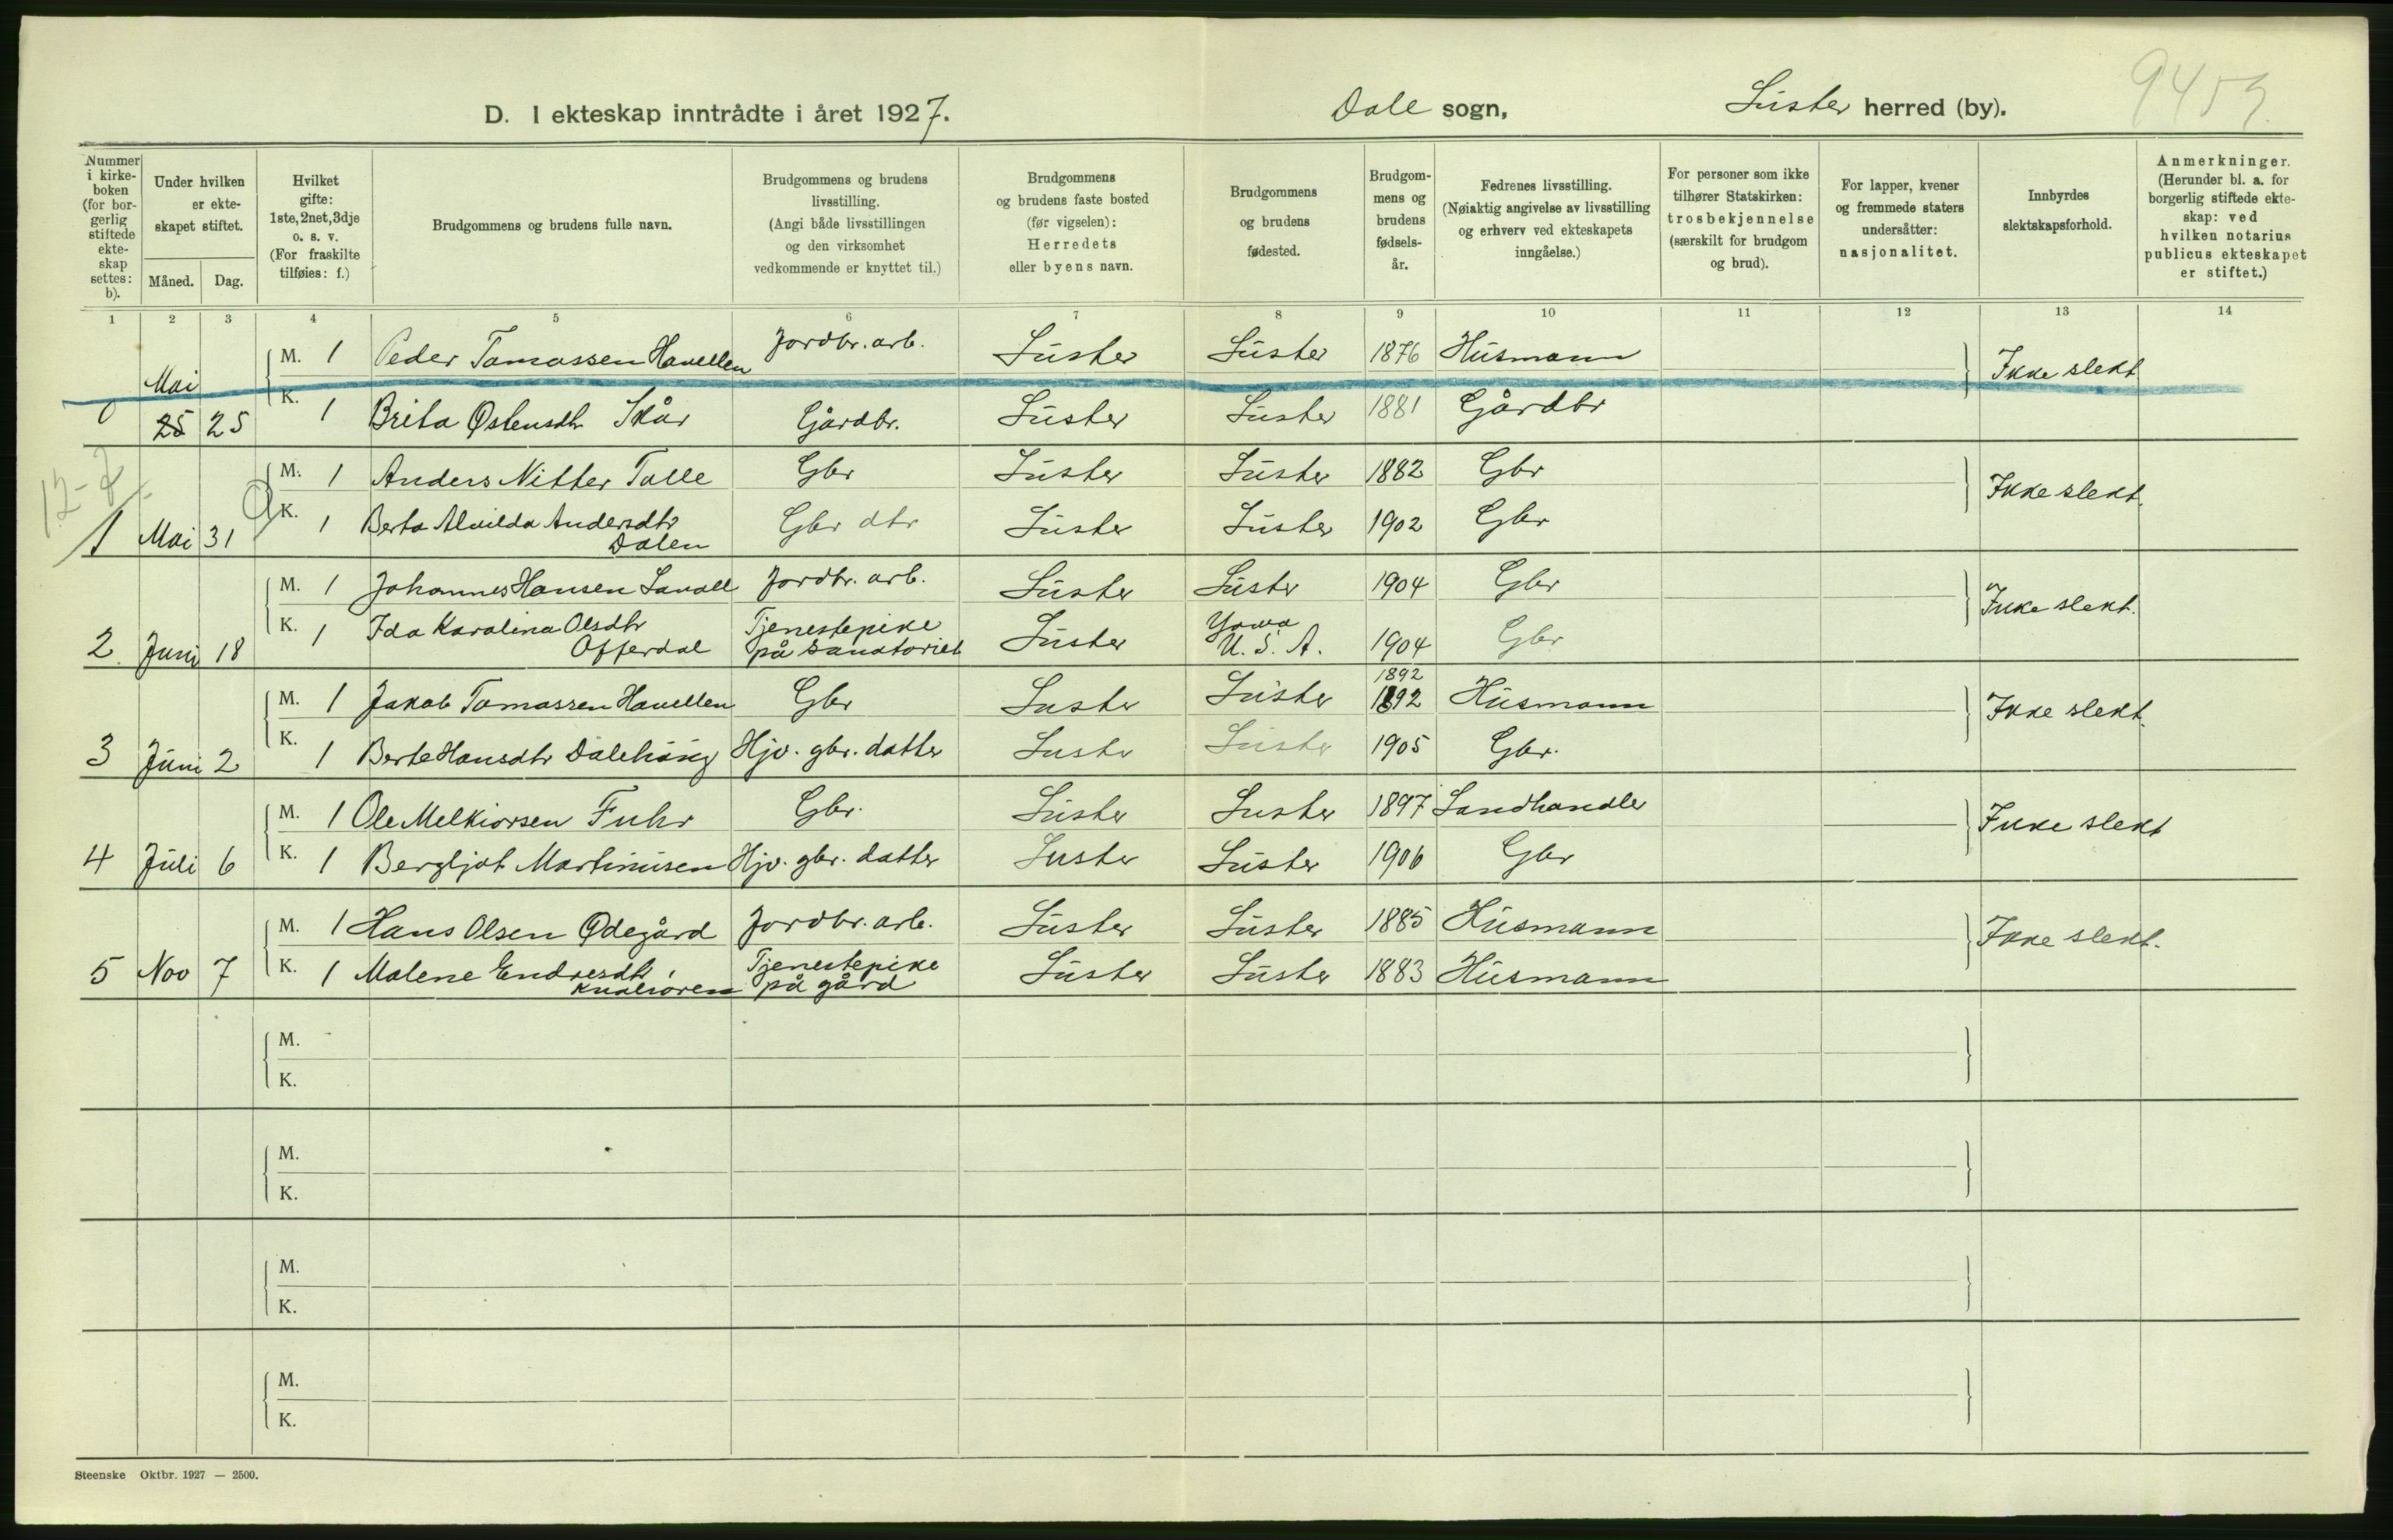 D. I ekteskap inntrådte i året 1927.
Dale sogn,
Luster herred (by).
9459
Nummer i kirke-boken (for bor-gerlig stiftede ekte-skap settes: b).
Under hvilken er ekte-skapet stiftet.
Måned. Dag.
Hvilket gifte: 1ste, 2net, 3dje o. s. v. (For fraskilte tilføies: f.)
Brudgommens og brudens fulle navn.
Brudgommens og brudens livsstilling. (Angi både livsstillingen og den virksomhet vedkommende er knyttet til.)
Brudgommens og brudens faste bosted (før vigselen): Herredets eller byens navn.
Brudgommens og brudens fødested.
Brudgom-mens og brudens fødsels-år.
Fedrenes livsstilling. (Nøiaktig angivelse av livsstilling og erhverv ved ekteskapets inngåelse.)
For personer som ikke tilhører Statskirken: trosbekjennelse (særskilt for brudgom og brud).
For lapper, kvener og fremmede staters undersåtter: nasjonalitet.
Innbyrdes slektskapsforhold.
Anmerkninger. (Herunder bl. a. for borgerlig stiftede ekte-skap: ved hvilken notarius publicus ekteskapet er stiftet.)
1 2 3 4 5 6 7 8 9 10 11 12 13 14
M. 1 Peder Tomassen Havellen Jordbr. arb. Luster Luster 1876 Husmann Ikke slekt
0 Mai 25 25 K. 1 Brita Østensdtr Skår Gårdbr. Luster Luster 1881 Gårdbr
12-8
M. 1 Anders Nitter Talle Gbr Luster Luster 1882 Gbr Ikke slekt.
1 Mai 31 K. 1 Berta Alvilda Andersdtr Dalen Gbr dtr Luster Luster 1902 Gbr
M. 1 Johannes Hansen Lavoll Jordbr. arb. Luster Luster 1904 Gbr Ikke slekt.
2. Juni 18 K. 1 Ida Karolina Olsdtr Offerdal Tjenestepike på sanatoriet Luster Yowa U. S. A. 1904 Gbr
M. 1 Jakob Tomassen Havellen Gbr Luster Luster 1892 1892 Husmann Ikke slekt
3 Juni 2 K. 1 Berte Hansdtr Dalehaug Hjv. gbr. datter Luster Luster 1905 Gbr.
M. 1 Ole Melkiorsen Fuhr Gbr. Luster Luster 1897 Landhandler Ikke slekt
4 Juli 6 K. 1 Bergljot Martinusen Hjv. gbr. datter Luster Luster 1906 Gbr
M. 1 Hans Olsen Ødegård Jordbr. arb. Luster Luster 1885 Husmann Ikke slekt.
5 Nov 7 K. 1 Malene Endresdtr Tjenestepike på gård Luster Luster 1883 Husmann
M.
K.
M.
K.
M.
K.
M.
K.
Steenske Oktbr. 1927 — 2500.